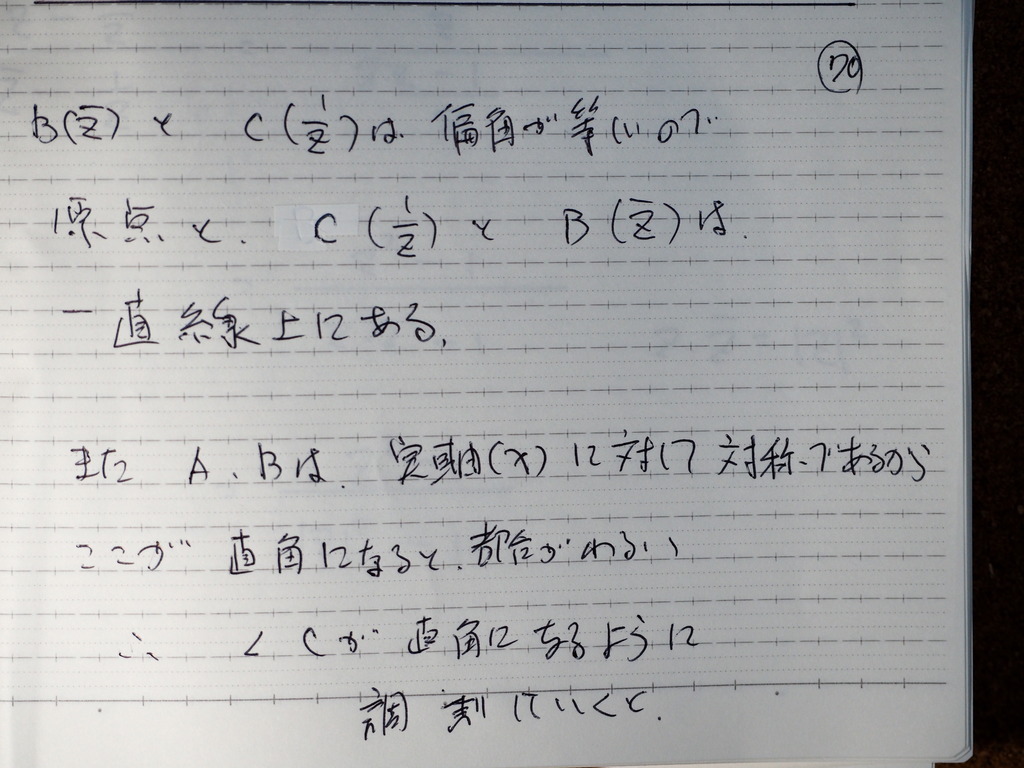 70
B(z̄)と C(1/z)は 偏角が等しいので
原点と、C(1/z)と B(z̄)は、
一直線上にある、
また A、Bは、実軸(x)に対して対称であるから
ここが 直角になると、都合がわるい
∴ ∠Cが 直角になるように
調 していくと、